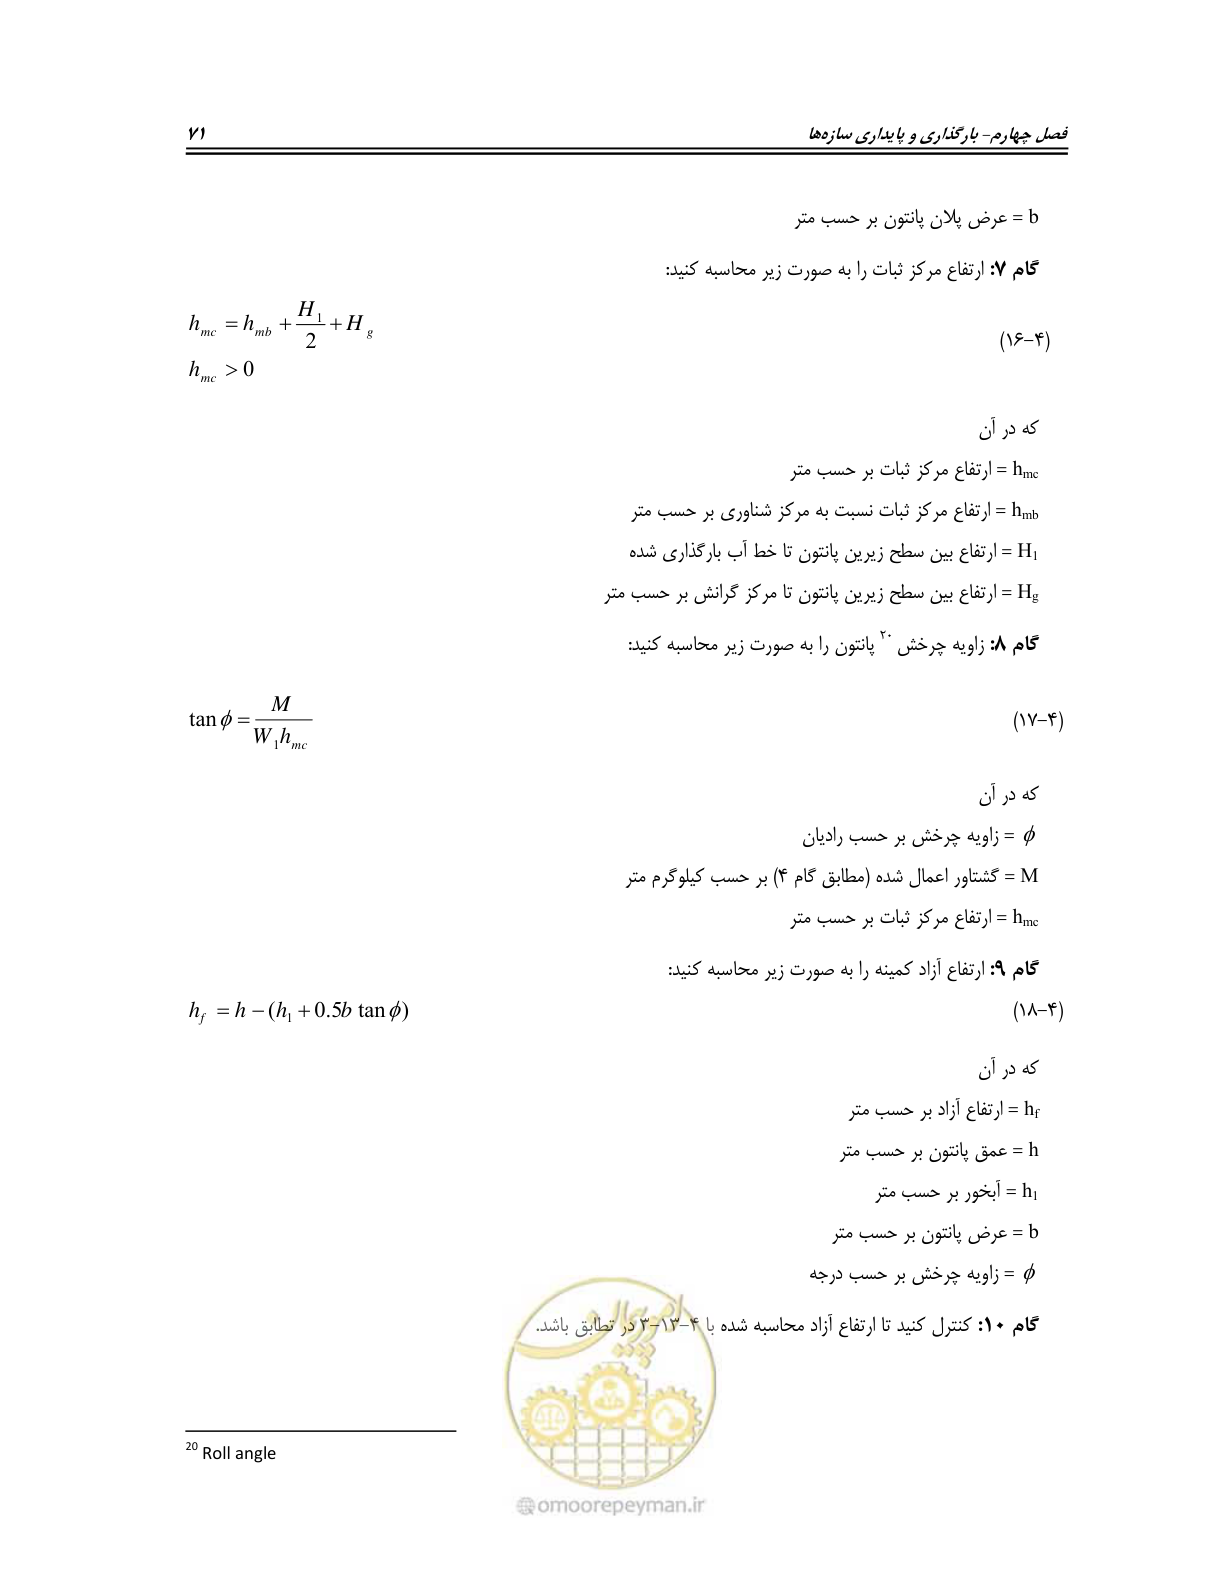 فصل چهارم– بارگذاری و پایداری سازه‌ها ۷۱
b = عرض پلان پانتون بر حسب متر
گام ۷: ارتفاع مرکز ثبات را به صورت زیر محاسبه کنید:
h_mc = h_mb + H_1/2 + H_g
(۴–۱۶)
h_mc > 0
که در آن
h_mc = ارتفاع مرکز ثبات بر حسب متر
h_mb = ارتفاع مرکز ثبات نسبت به مرکز شناوری بر حسب متر
H_1 = ارتفاع بین سطح زیرین پانتون تا خط آب بارگذاری شده
H_g = ارتفاع بین سطح زیرین پانتون تا مرکز گرانش بر حسب متر
گام ۸: زاویه چرخش ۲۰ پانتون را به صورت زیر محاسبه کنید:
tan ϕ = M / W_1 h_mc (۴–۱۷)
که در آن
ϕ = زاویه چرخش بر حسب رادیان
M = گشتاور اعمال شده (مطابق گام ۴) بر حسب کیلوگرم متر
h_mc = ارتفاع مرکز ثبات بر حسب متر
گام ۹: ارتفاع آزاد کمینه را به صورت زیر محاسبه کنید:
h_f = h − (h_1 + 0.5b tan ϕ) (۴–۱۸)
که در آن
h_f = ارتفاع آزاد بر حسب متر
h = عمق پانتون بر حسب متر
h_1 = آبخور بر حسب متر
b = عرض پانتون بر حسب متر
ϕ = زاویه چرخش بر حسب درجه
گام ۱۰: کنترل کنید تا ارتفاع آزاد محاسبه شده با ۴–۱۳–۳ در تطابق باشد.
امور پیمان
20 Roll angle
@omoorepeyman.ir